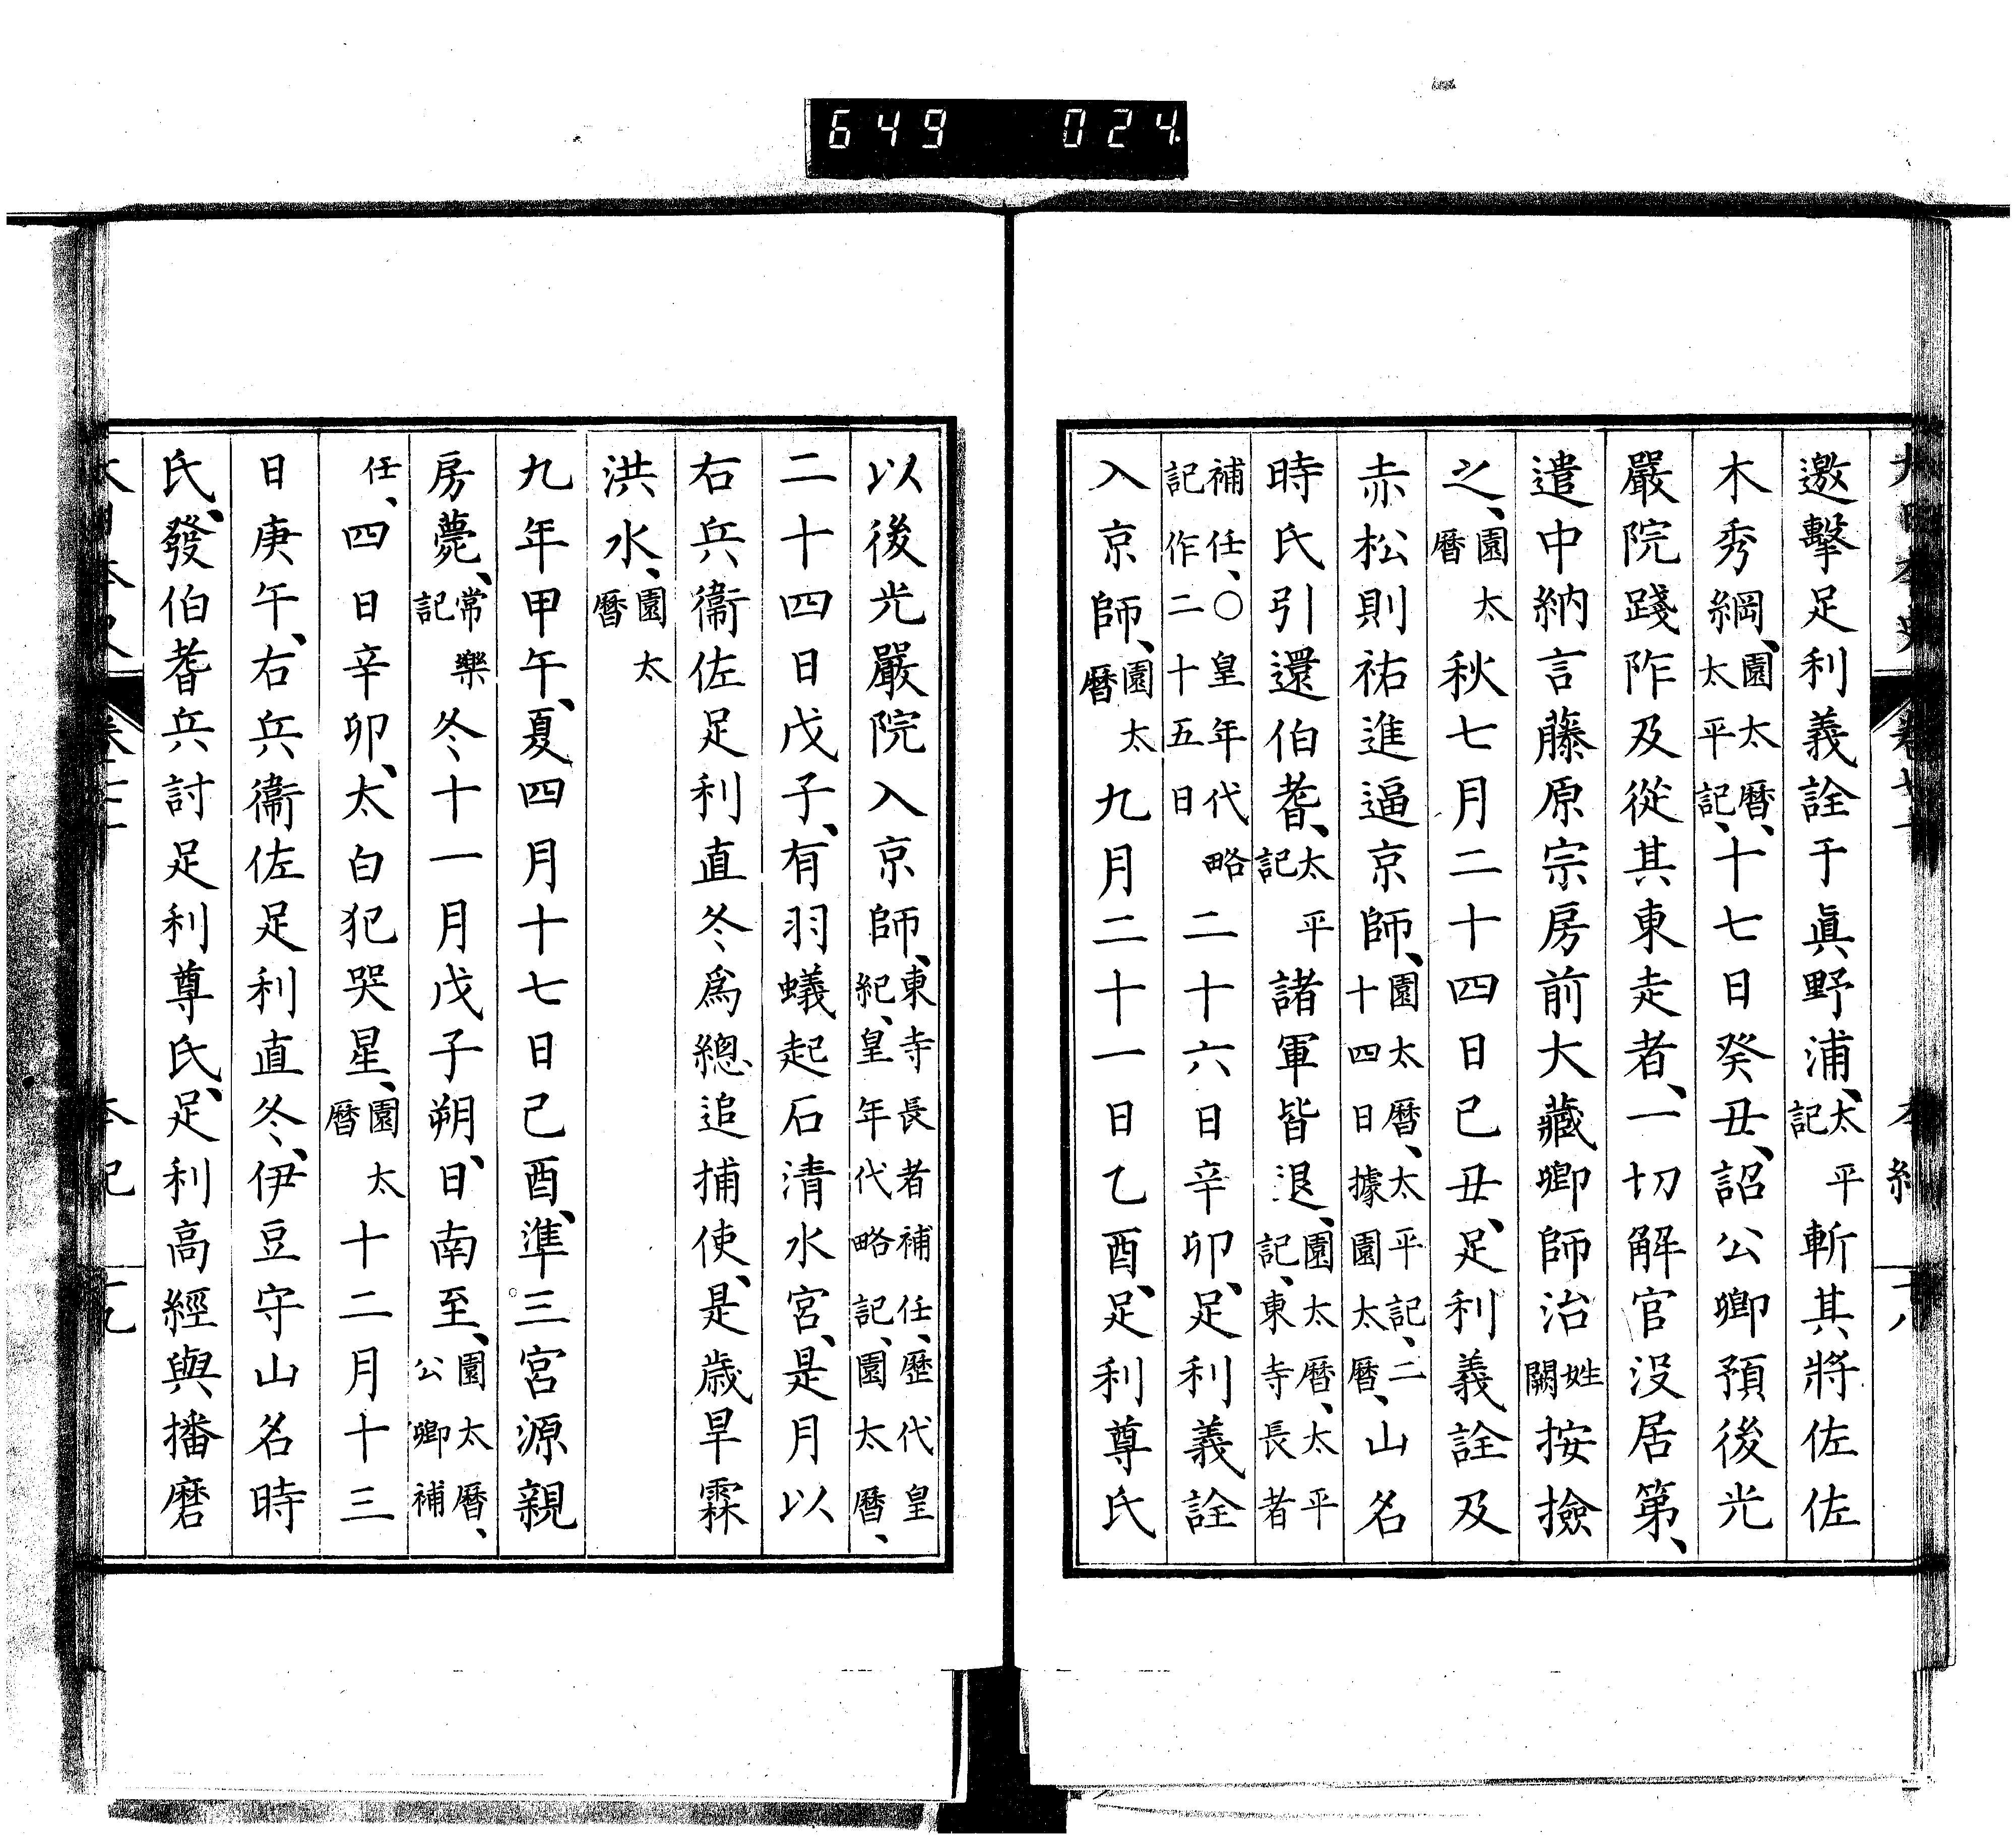 649 024
大日本史 本紀 十八
邀擊足利義詮于眞野浦、太平記斬其將佐佐
木秀綱、園太曆、太平記、十七日癸丑、詔公卿預後光
嚴院踐阼及從其東走者、一切解官沒居第、
遣中納言藤原宗房前大藏卿師治姓闕按撿
之、園太曆秋七月二十四日己丑、足利義詮及
赤松則祐進逼京師、園太曆、太平記、二十四日據園太曆、山名
時氏引還伯耆、太平記諸軍皆退、園太曆、太平記、東寺長者
補任、○皇年代略記作二十五日二十六日辛卯、足利義詮
入京師、園太曆九月二十一日乙酉、足利尊氏
以後光嚴院入京師、東寺長者補任、歷代皇紀、皇年代略記、園太曆、
二十四日戊子、有羽蟻起石清水宮、是月以
右兵衞佐足利直冬爲總追捕使、是歲旱霖
洪水、園太曆
九年甲午、夏四月十七日己酉、準三宮源親
房薨、常樂記冬十一月戊子朔、日南至、園太曆、公卿補
任、四日辛卯、太白犯哭星、園太曆十二月十三
日庚午、右兵衞佐足利直冬、伊豆守山名時
氏、發伯耆兵討足利尊氏、足利高經與播磨